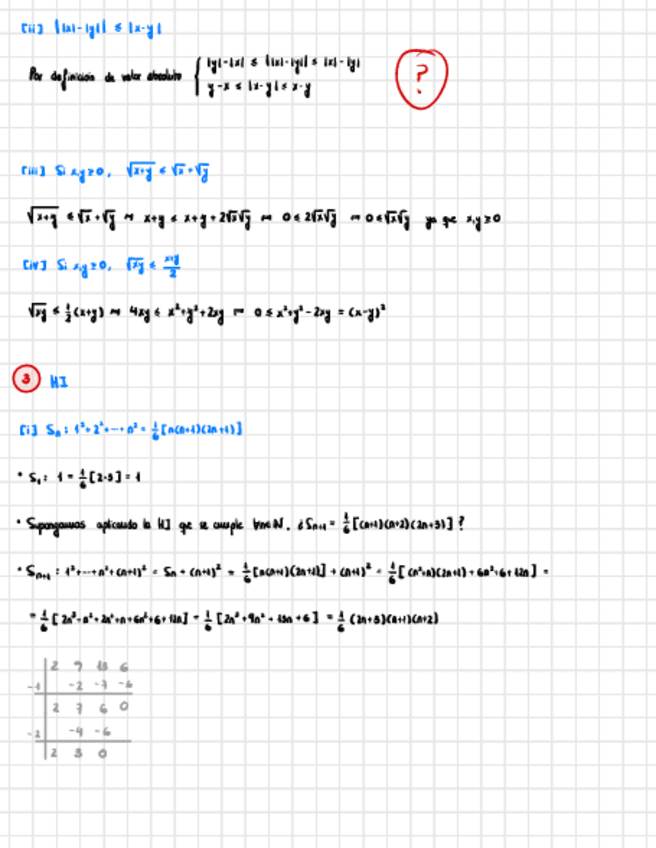 [ii] ||x|-|y|| ≤ |x-y|
Por definición de valor absoluto { |y|-|x| ≤ ||x|-|y|| ≤ |x|-|y|
y-x ≤ |x-y| ≤ x-y
?
[iii] Si x,y≥0, √(x+y) ≤ √x+√y
√(x+y) ≤ √x+√y ⇒ x+y ≤ x+y+2√x√y ⇒ 0≤2√x√y ⇒ 0≤√x√y ya que x,y≥0
[iv] Si x,y≥0, √(xy) ≤ (x+y)/2
√(xy) ≤ 1/2(x+y) ⇒ 4xy ≤ x²+y²+2xy ⇒ 0≤ x²+y²-2xy = (x-y)²
3 HI
[i] Sn: 1²+2²+...+n² = 1/6[n(n+1)(2n+1)]
• S₁: 1 = 1/6[2·3] = 1
• Supongamos aplicando la HI que se cumple ∀n∈N. ¿Sn+1 = 1/6[(n+1)(n+2)(2n+3)]?
• Sn+1: 1²+...+n²+(n+1)² = Sn+(n+1)² = 1/6[n(n+1)(2n+1)]+(n+1)² = 1/6[(n²+n)(2n+1)+6n²+6+12n] =
= 1/6[2n³+n²+2n²+n+6n²+6+12n] = 1/6[2n³+9n²+13n+6] = 1/6(2n+3)(n+1)(n+2)
2 9 13 6
-1 -2 -7 -6
2 7 6 0
-2 -4 -6
2 3 0